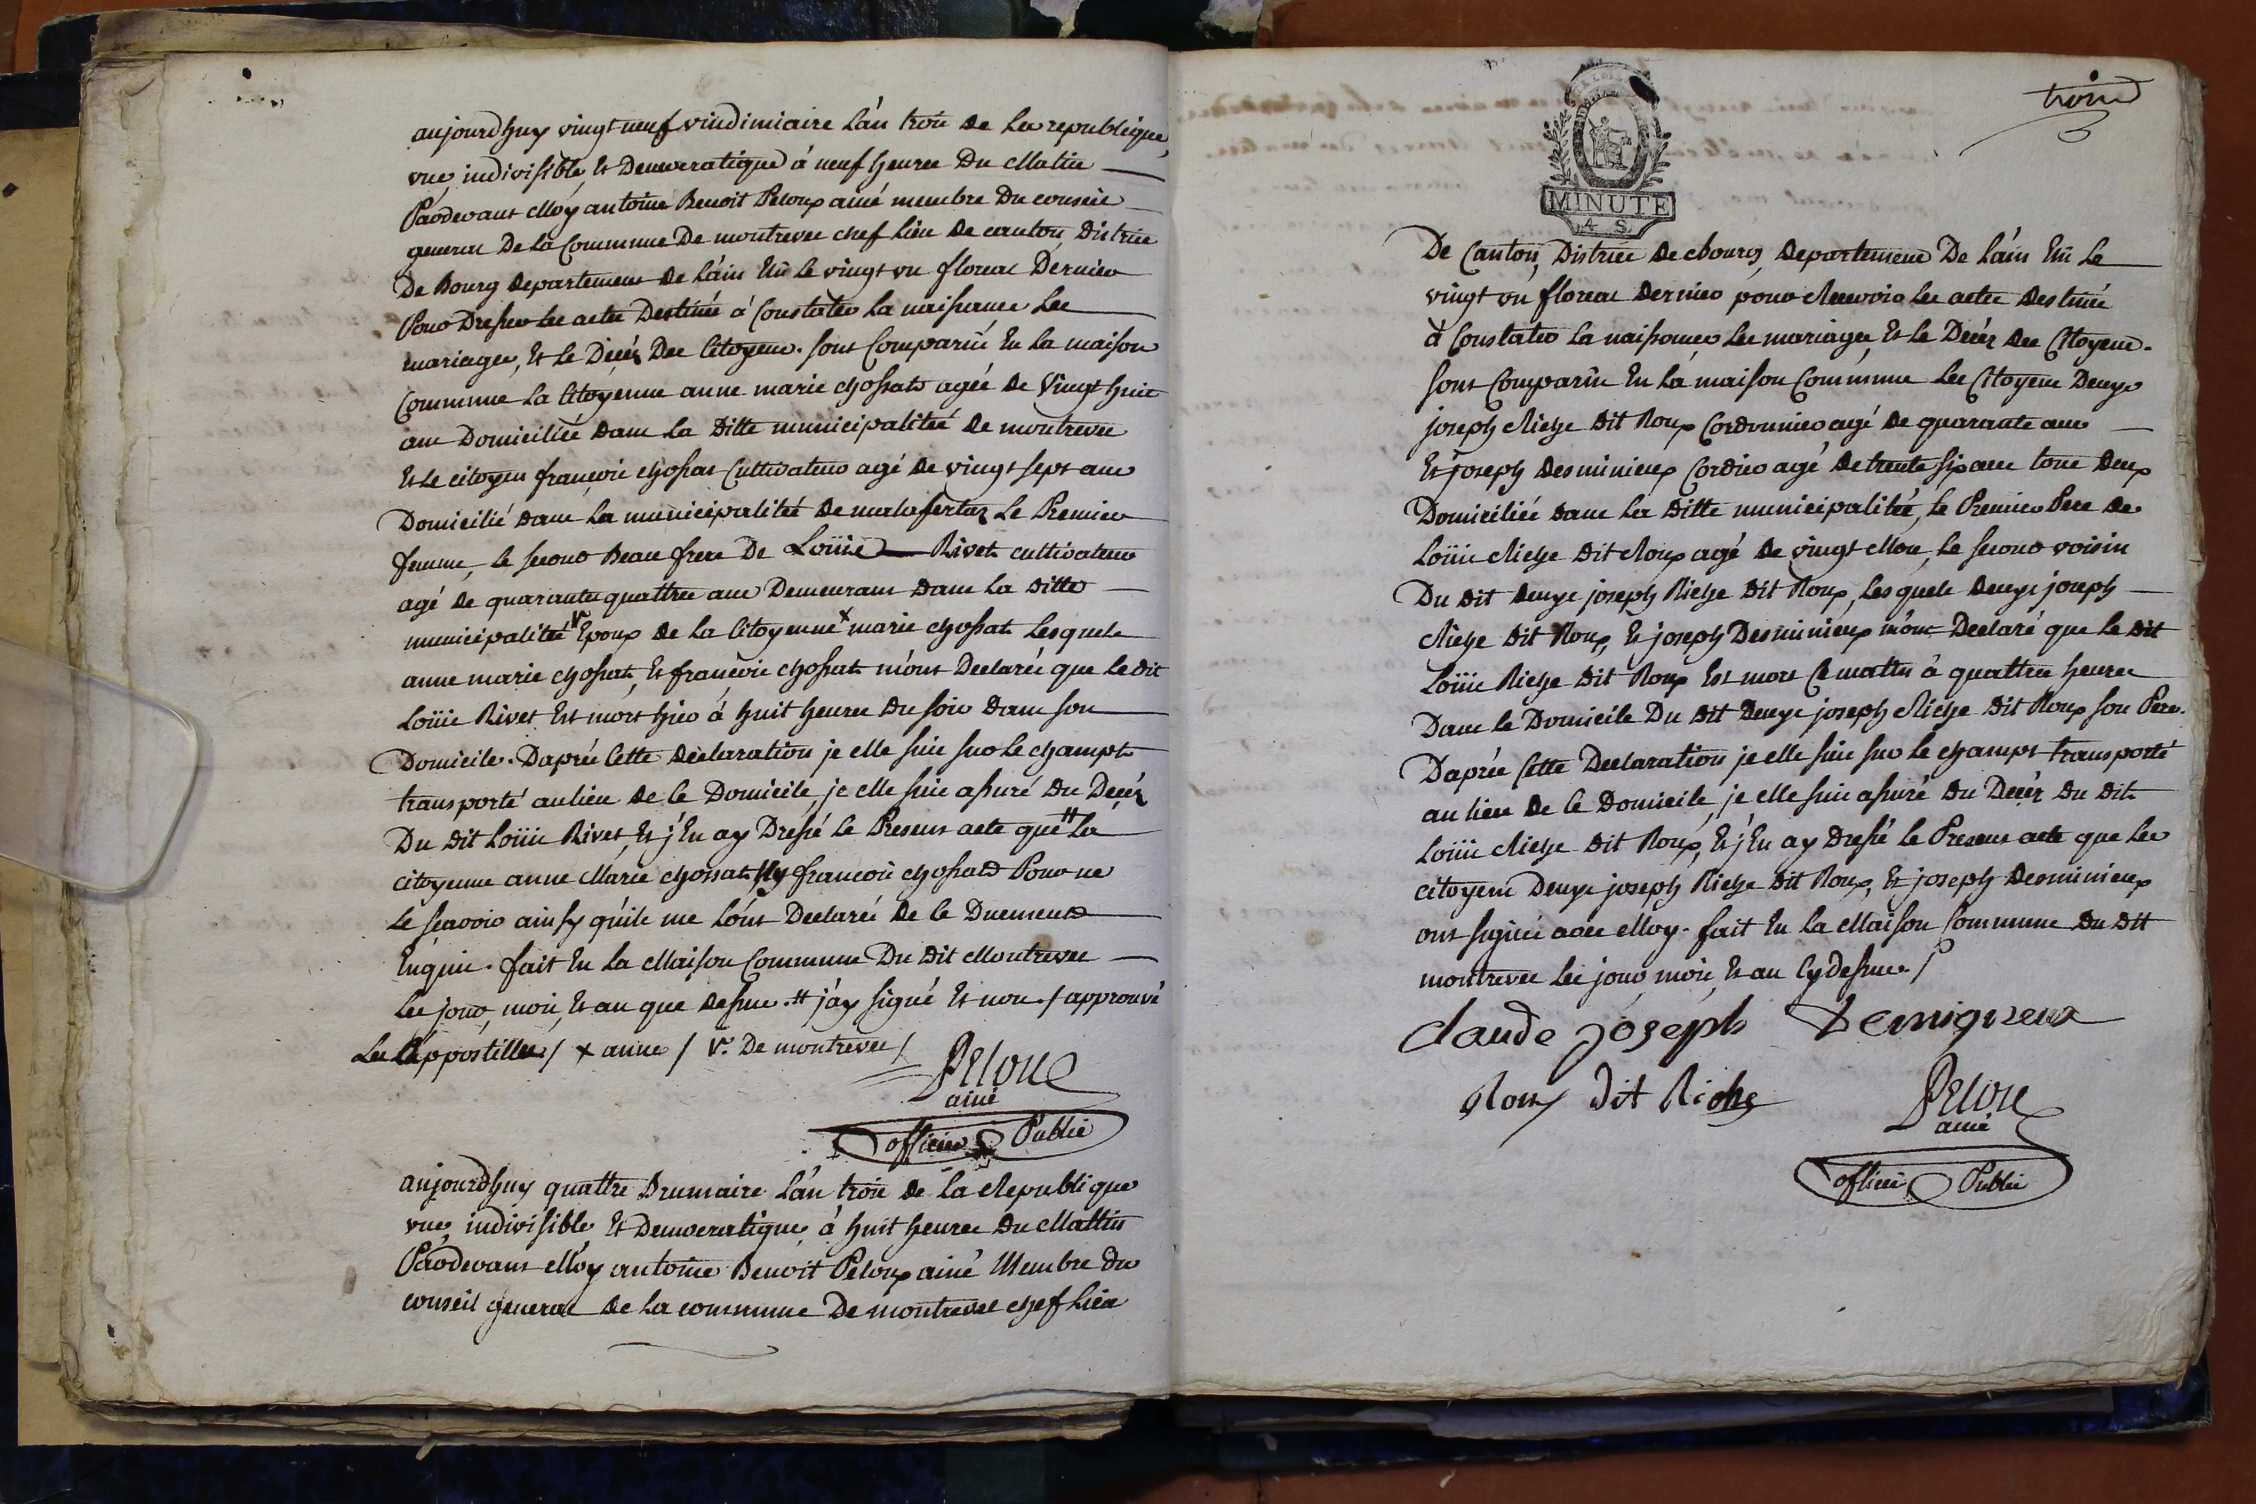 aujourdhuy vingt neuf vindimiaire L'an trois De La republique,
vne, indivisible, Et Democratique à neuf heures Du Matin
Pardevant Moy antoine Benoit Peloux ainé membre Du conseil
general De La Commune De montrevel chef Lieu De canton District
De Bourg Departement De L'ain Elû Le vingt vn floreal Dernier
Pour Dresser Les actes Destinés à Constater La naissance Les
mariages, Et Le Décéz Des Citoyens. sont Comparûs En La maison
Commune La Citoyenne anne marie chossat agée De Vingt huit
ans Domiciliée Dans La Ditte municipalitée De montrevel
Et Le citoyen françois chossat Cultivateur agé De vingt sept ans
Domicilié Dans La municipalitée De malafertaz Le Premier
femme, Le second Beau frere De Loüis Rivet cultivateur
agé De quarante quattre ans Demeurant Dans La Ditte
municipalitée V. Epoux De La Citoyenne x marie chossat Lesquels
anne marie chossat, Et françois chossat m'ont Declarés que Le dit
Loüis Rivet Est mort hier à huit heures Du soir Dans son
Domicile. Daprés Cette Déclaration je Me suis sur Le champt
transporté au Lieu De Ce Domicile, je Me suis assuré Du Decéz
Du Dit Loüis Rivet, Et j'En ay Dressé Le Present acte que # La
citoyenne anne Marie chossat Ny françois chossat Pour ne
Le sçavoir ainsy qu'ils me L'ont Declarés De Ce Duement
Enquis. fait En La Maison Commune Du Dit Montrevel
Les jour, mois, Et an que Dessus. # j'ay signé Et non / approuvé
Les appostilles / x anne / V. De montrevel /
Peloux
ainé
officier Public
aujourdhuy quattre Brumaire L'an trois De La Republique
vne, indivisible, Et Democratique, à huit heures Du Mattin
Pardevant Moy antoine Benoit Peloux ainé Membre Du
conseil general De La commune De montrevel chef Lieu
trois
MINUTE
4 S.
De Canton, District De Bourg, Departement De L'ain Elû Le
vingt vn floreal Dernier pour Recevoir Les actes Destinés
à Constater La naissance Les mariages, Et Le Décéz Des Citoyens.
sont Comparûs En La maison Commune Les Citoyens Deuxe
joseph Riche Dit Roux Cordonnier agé De quarante ans
Et joseph Desminieux Cordier agé De trente six ans tous Deux
Domiciliés Dans La Ditte municipalitée, Le Premier Pere De
Loüis Riche Dit Roux agé De vingt Mois, Le second voisin
Du Dit Deuxe joseph Riche Dit Roux, Lesquels Deuxe joseph
Riche Dit Roux, Et joseph Desminieux m'ont Declaré que Le Dit
Loüis Riche Dit Roux Est mort Ce mattin à quattre heures
Dans Le Domicile Du Dit Deuxe joseph Riche Dit Roux son Pere.
Daprés Cette Declaration je Me suis sur Le champt transporté
au Lieu De Ce Domicile, je Me suis assuré Du Décéz Du Dit
Loüis Riche Dit Roux, Et j'En ay Dressé Le Present acte que Les
citoyens Deuxe joseph Riche Dit Roux, Et joseph Desminieux
ont signés avec Moy. fait En La Maison Commune Du Dit
montrevel Les jour, mois, Et an Cy Dessus. /
Claude joseph Demigneux
Roux Dit Riche
Peloux
ainé
officier Public